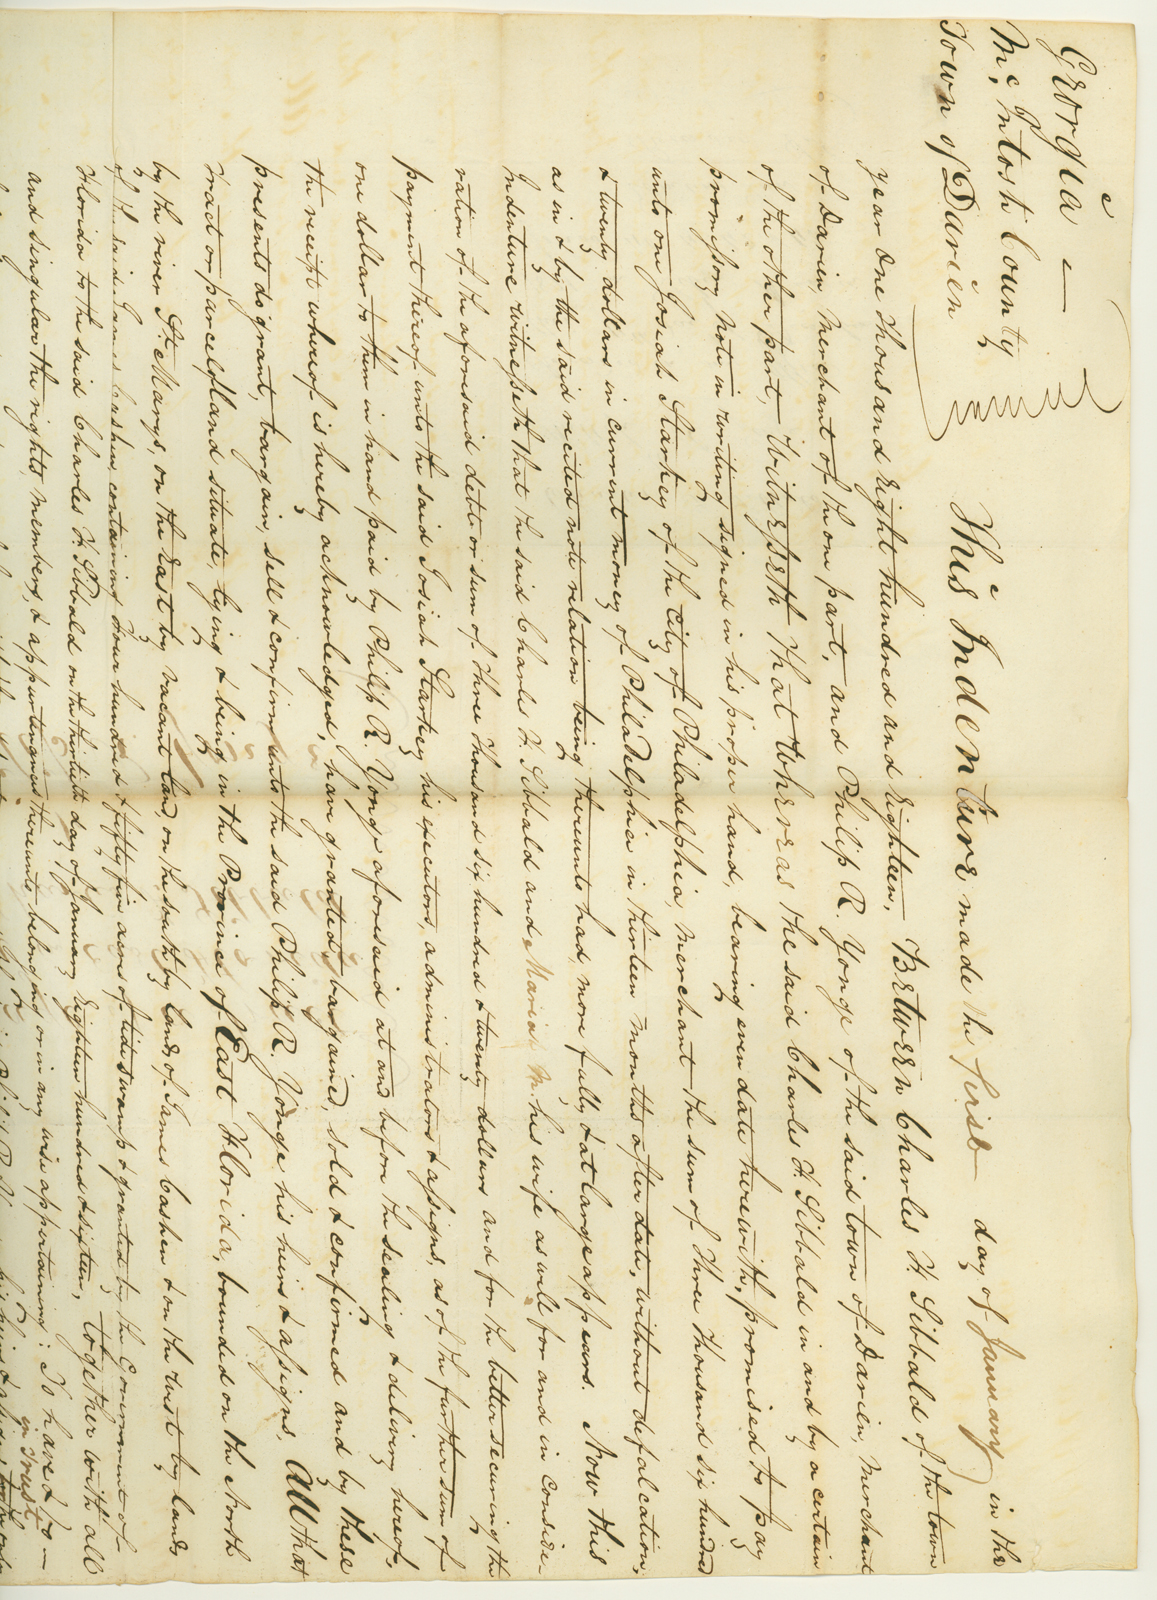 Georgia —
McIntosh County
Town of Darien
This Indenture made the first day of January in the
year One thousand Eight hundred and Eighteen, Between Charles H. Sibbald of the town
of Darien, Merchant of the one part, and Philip R. Yonge of the said town of Darien, Merchant
of the other part, Witnesseth That Whereas the said Charles H. Sibbald in and by a certain
promissory note in writing signed in his proper hand, bearing even date herewith, promised to pay
unto one Josiah Starkey of the City of Philadelphia, merchant the sum of Three thousand six hundred
& twenty dollars in current money of Philadelphia in thirteen months after date, without defalcation,
as in & by the said recited note relation being thereunto had, more fully & at large appears. Now this
Indenture witnesseth that the said Charles H. Sibbald and Maria M his wife as well for and in conside-
ration of the aforesaid debt or sum of Three thousand six hundred & twenty dollars and for the better securing the
payment thereof unto the said Josiah Starkey his executors, administrators & assigns, as of the further sum of
one dollar to them in hand paid by Philip R. Yonge aforesaid at and before the sealing & delivery hereof,
the receipt whereof is hereby acknowledged, have granted, bargained, sold & confirmed and by these
presents do grant, bargain, sell & confirm unto the said Philip R. Yonge his heirs & assigns, All that
tract or parcel of land situate, lying & being in the Province of East Florida, bounded on the North
by the river St. Marys, on the East by vacant land, on the south by lands of James Cashen & on the west by lands
of the said James Cashen, containing Four hundred fifty five acres of tide swamp & granted by the Government of
Florida to the said Charles H. Sibbald on the thirtieth day of January Eighteen hundred & sixteen, Together with all
and singular the rights, members, & appurtenances thereunto belonging or in any wise appertaining: To have & to
in trust